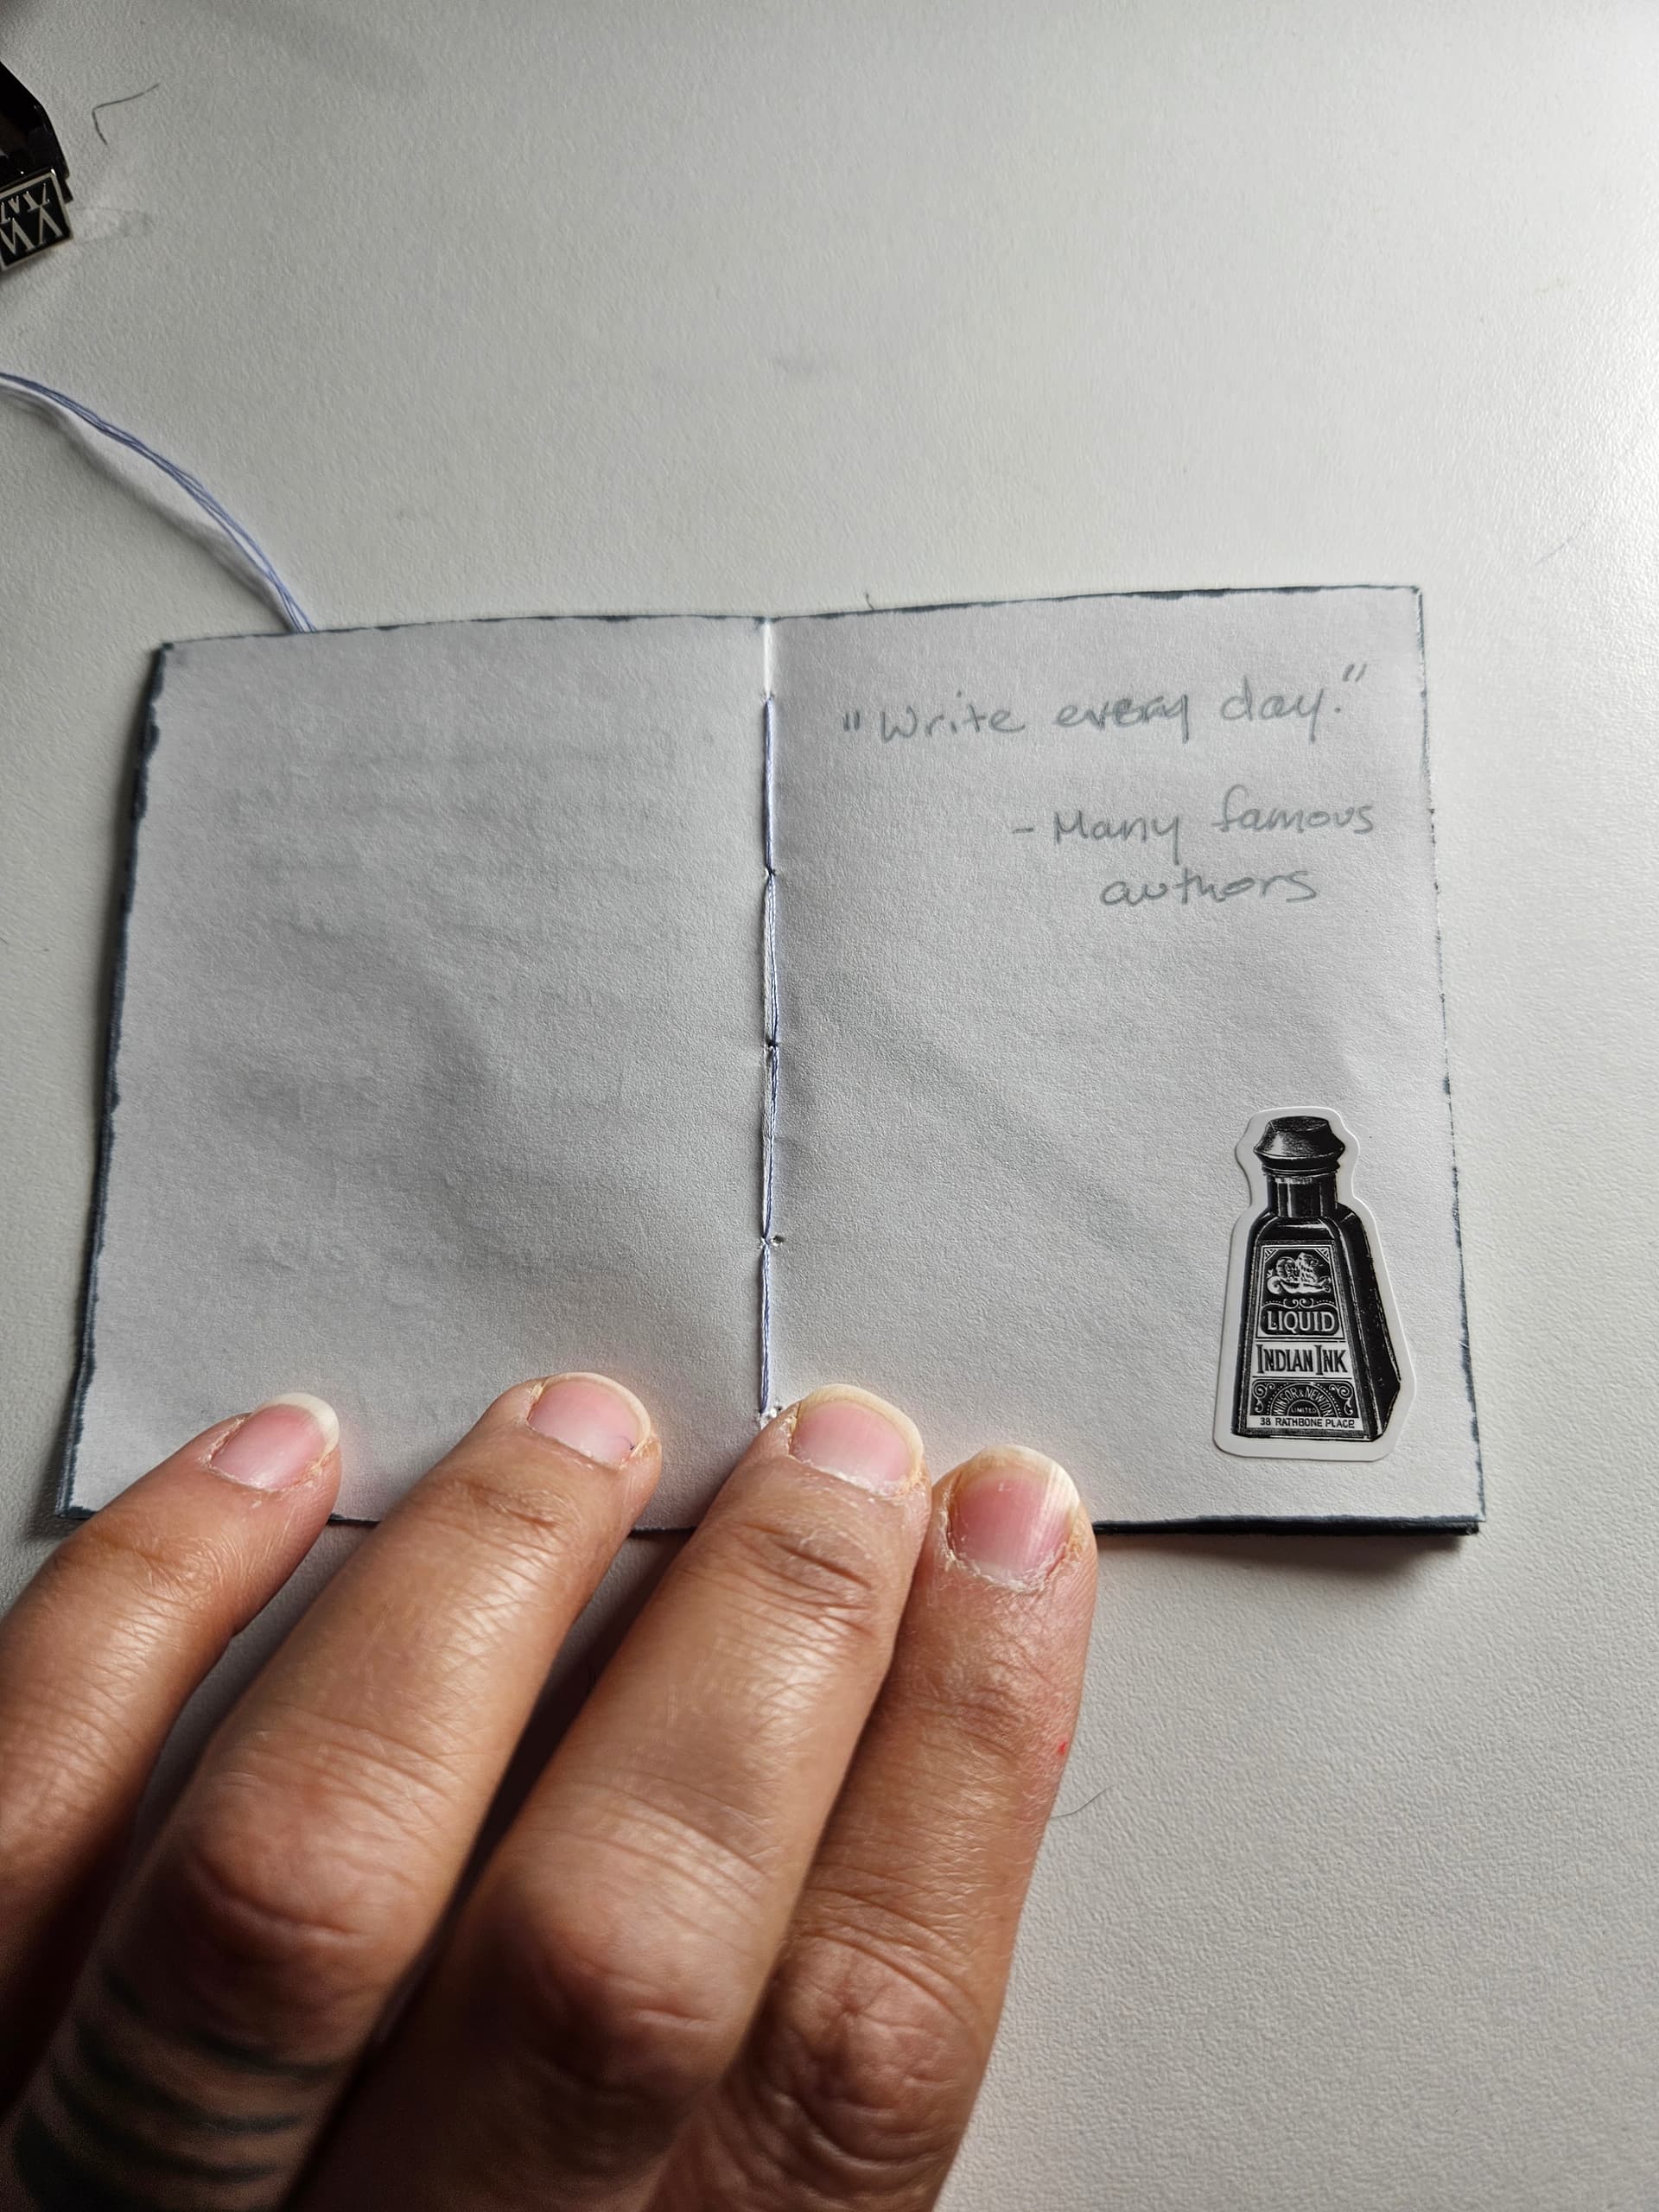 "Write every day."
- Many famous
authors
LIQUID
INDIAN INK
WINSOR & NEWTON
LIMITED
38 RATHBONE PLACE